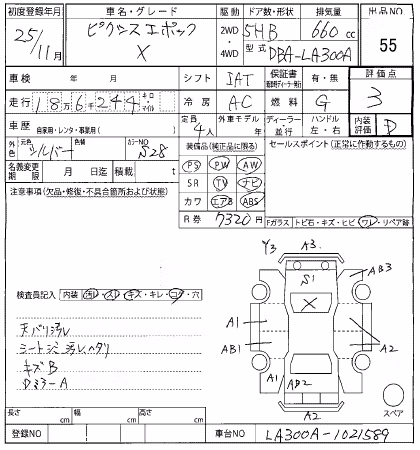 初度登録年月 車名・グレード 駆動 ドア数・形状 排気量 出品NO
25/11月 ピクシスエポック X 2WD・4WD 5HB 660cc 55
型式 DBA-LA300A
車検 年 月 シフト IAT 保証書 有・無 評価点
走行 18万6千244キロ・マイル 冷房 AC 燃料 G 3
車歴 自家用・レンタ・事業用( ) 定員 4人 外車モデル 年 ディーラー・並行 ハンドル 左・右 内装評価 D
外色 元色 シルバー 色替 カラーNO S28 装備品(純正品に限る) セールスポイント(正常に作動するもの)
名義変更期限 月 日迄 積載 t PS PW AW
注意事項(欠品・修復・不具合箇所および状態) SR TV ナビ
カワ エアB ABS
R券 7320円 Fガラス トビ石・キズ・ヒビ・ワレ・リペア跡
Y3 A3
S1 AB3
X
検査員記入 内装 汚レ・スレ・キズ・キレ・コゲ・穴
A1 A2
AB1
天バリ汚レ
シートシミ汚レヘタリ
キズB
A1 AB2
A2
スペア
長さ cm 幅 cm 高さ cm
登録NO 車台NO LA300A-1021589